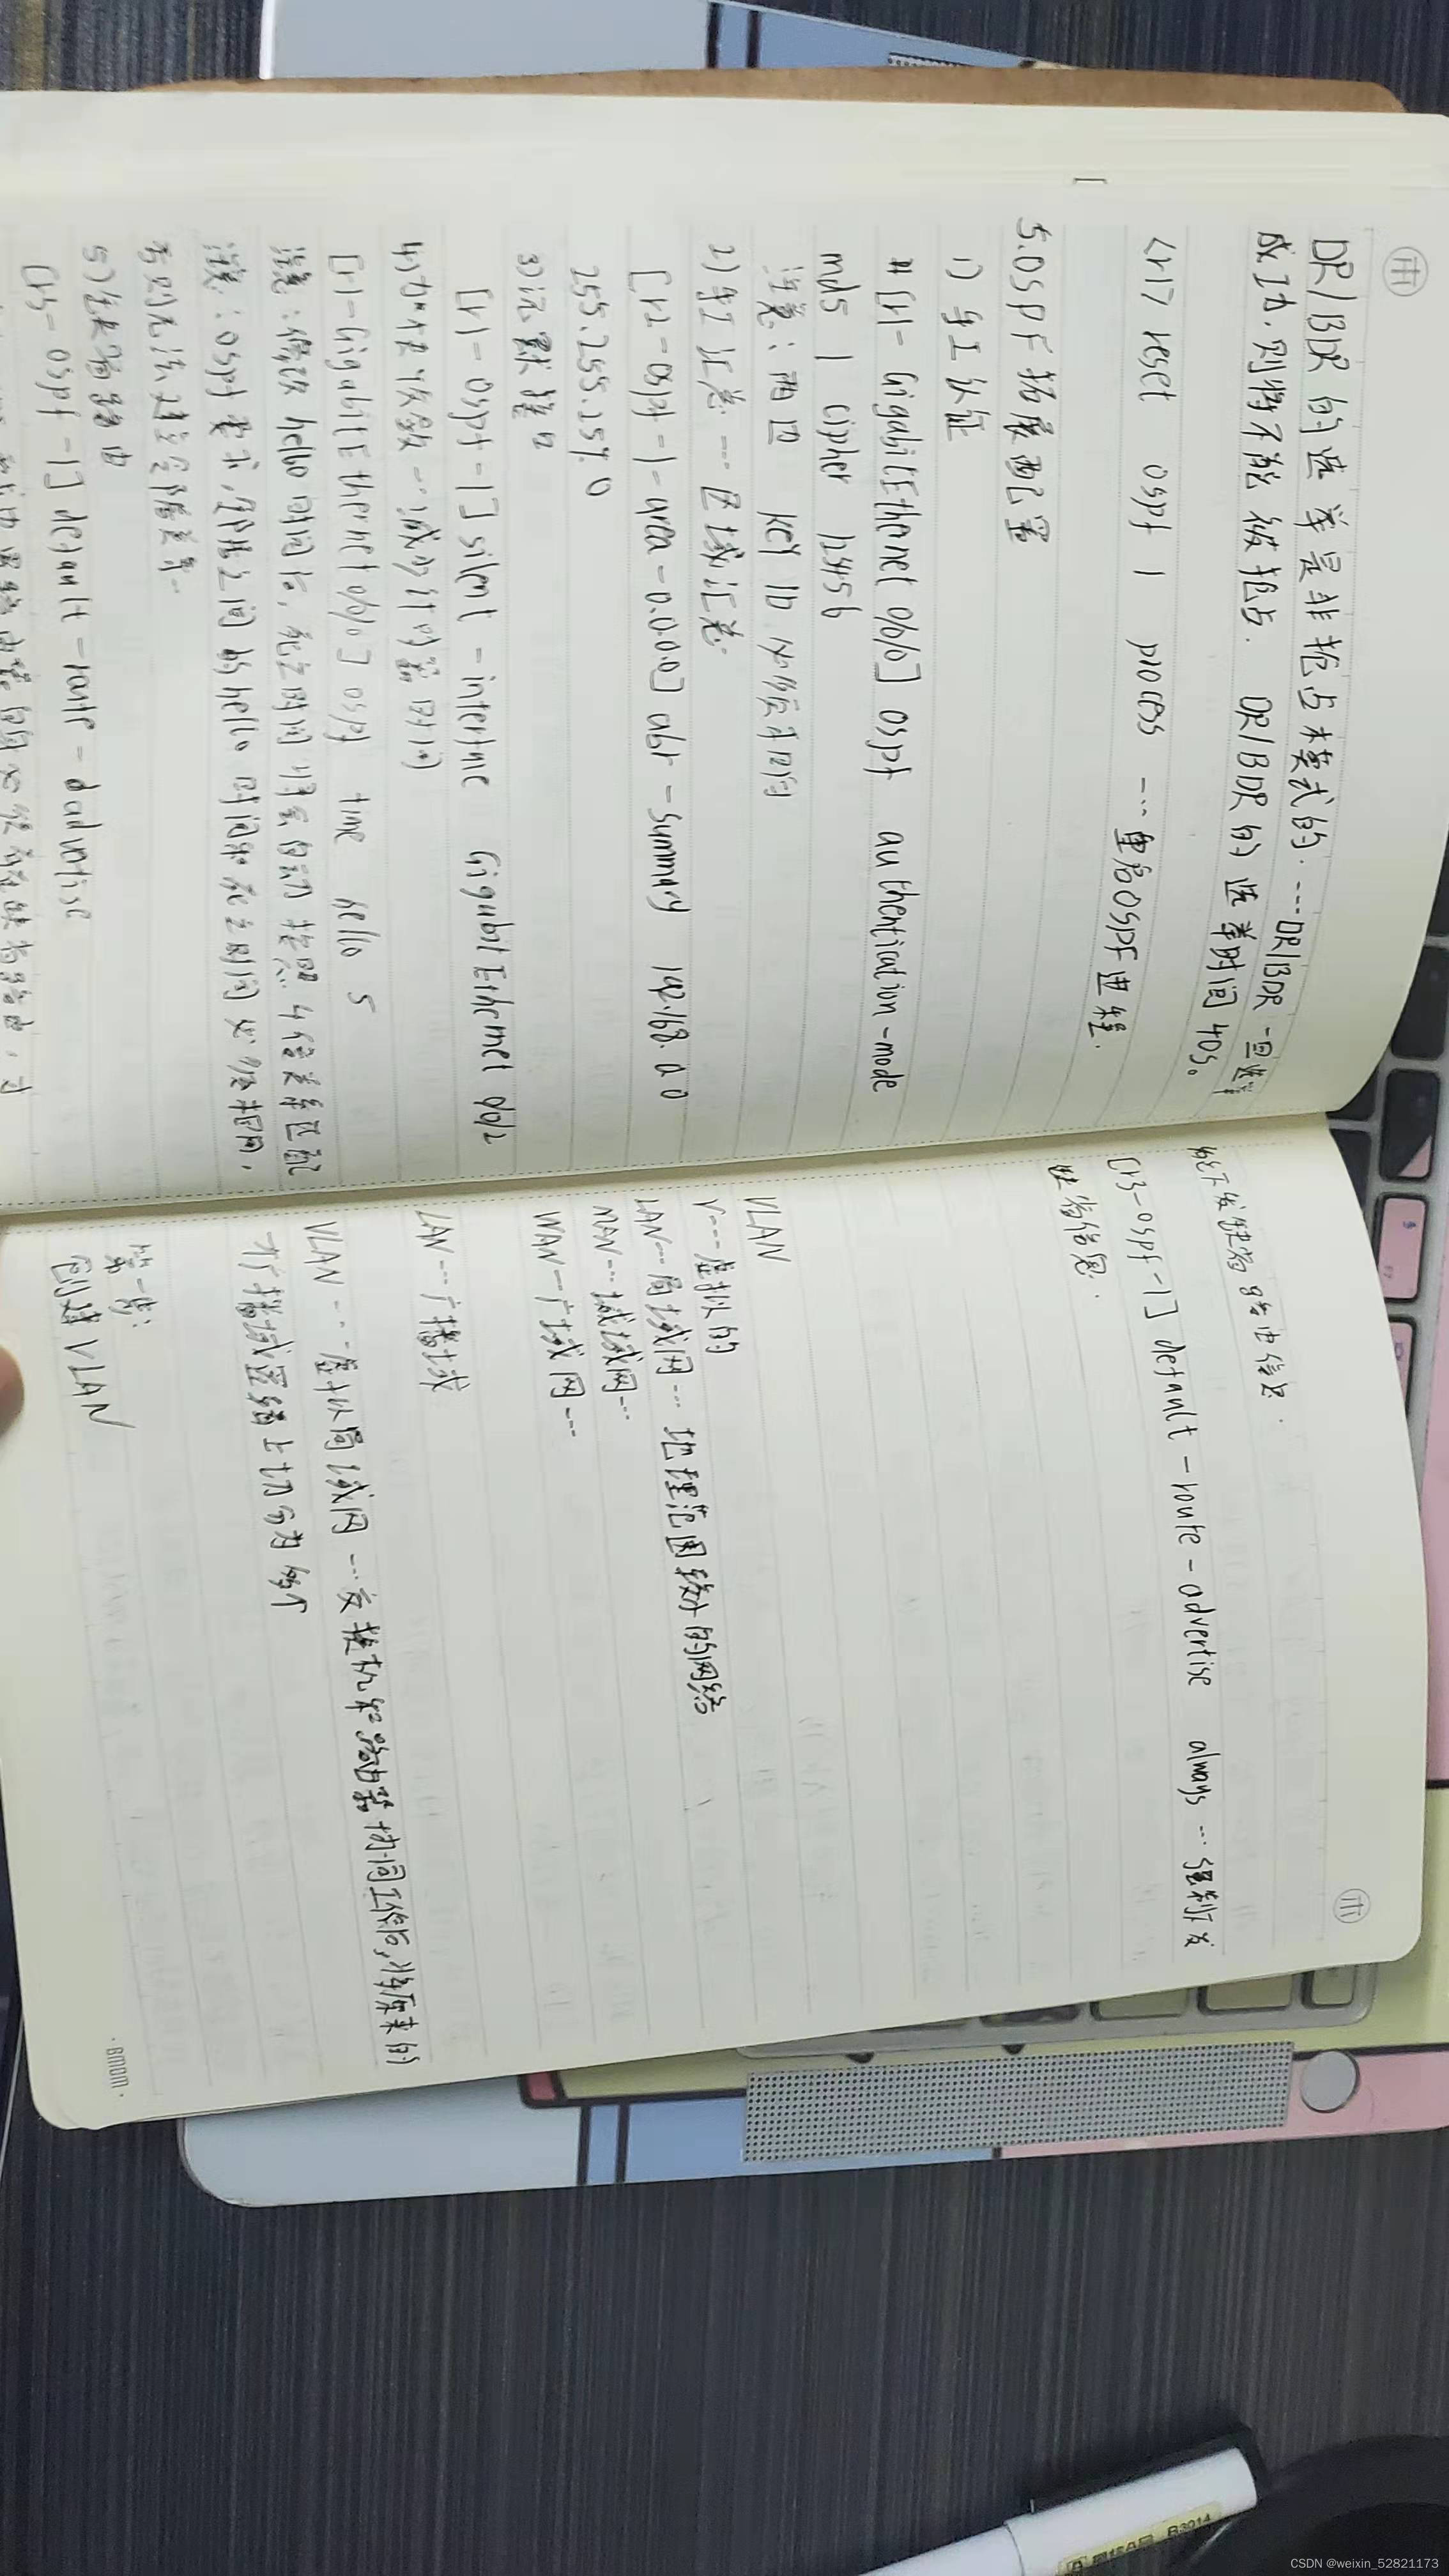 DR/BDR 的选举是非抢占模式的. ---DR/BDR 一旦选举
成功.则将不能被抢占. DR/BDR的选举时间40s。
<r1> reset ospf 1 process --- 重启OSPF进程.
5.OSPF拓展配置
1) 手工认证
# [r1- GigabitEthernet 0/0/0] ospf authentication-mode
md5 1 cipher 123456
注意:两边 key ID 必须相同
2)手工汇总 --- 区域汇总
[r2-ospf-1-area-0.0.0.0] abr-summary 192.168.0.0
255.255.252.0
3)沉默接口
[r1-ospf-1] silent-interface GigabitEthernet 0/0/2
4)加快收敛 -- 减少计时器时间
[r1-GigabitEthernet 0/0/0] ospf time hello 5
注意:修改hello时间后,死亡时间将会自动按照4倍关系匹配
注意:ospf要求,邻居之间的hello时间和死亡时间必须相同,
否则无法建立邻居关系..
5)缺省路由
[r3-ospf-1] default-route-dadvertise
给下发缺省路由信息.
[r3-ospf-1] default-route-advertise always --- 强制下发
缺省信息.
VLAN
V---虚拟的
LAN---局域网--- 地理范围较小的网络
MAN---城域网---
WAN---广域网---
LAN---广播域
VLAN---虚拟局域网---交换机和路由器协同工作后,将原来的
广播域逻辑上切分为多个
第一步:
创建VLAN
·BMOM·
R3014
CSDN @weixin_52821173